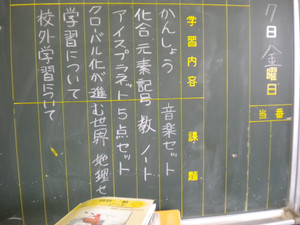 7日 金曜日
当番
学習内容 課題
かんしょう 音楽セット
化合 元素記号 教 ノート
アイスプラネット 5点セット
グローバル化が進む世界 地理セ
学習について
校外学習について